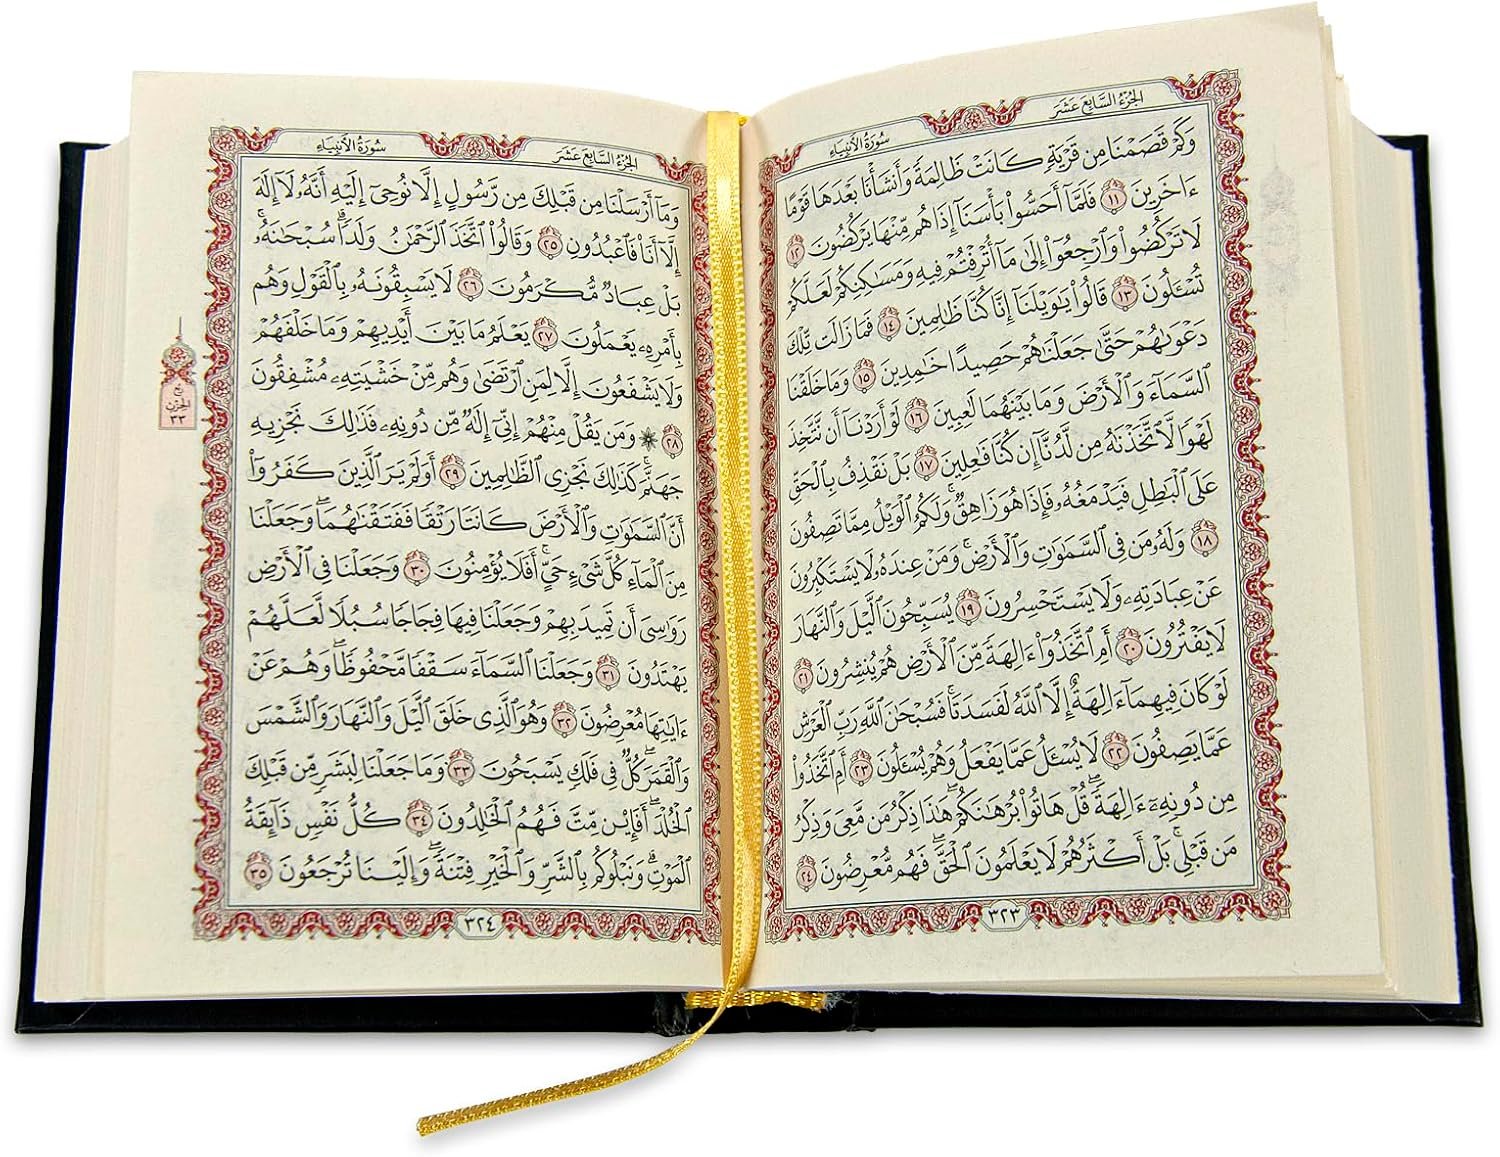 الجزء السابع عشر
سورة الأنبياء
وَكَمْ قَصَمْنَا مِن قَرْيَةٍ كَانَتْ ظَالِمَةً وَأَنشَأْنَا بَعْدَهَا قَوْمًا
ءَاخَرِينَ ١١ فَلَمَّا أَحَسُّوا۟ بَأْسَنَآ إِذَا هُم مِّنْهَا يَرْكُضُونَ ١٢
لَا تَرْكُضُوا۟ وَٱرْجِعُوٓا۟ إِلَىٰ مَآ أُتْرِفْتُمْ فِيهِ وَمَسَـٰكِنِكُمْ لَعَلَّكُمْ
تُسْـَٔلُونَ ١٣ قَالُوا۟ يَـٰوَيْلَنَآ إِنَّا كُنَّا ظَـٰلِمِينَ ١٤ فَمَا زَالَت تِّلْكَ
دَعْوَىٰهُمْ حَتَّىٰ جَعَلْنَـٰهُمْ حَصِيدًا خَـٰمِدِينَ ١٥ وَمَا خَلَقْنَا
ٱلسَّمَآءَ وَٱلْأَرْضَ وَمَا بَيْنَهُمَا لَـٰعِبِينَ ١٦ لَوْ أَرَدْنَآ أَن نَّتَّخِذَ
لَهْوًا لَّٱتَّخَذْنَـٰهُ مِن لَّدُنَّآ إِن كُنَّا فَـٰعِلِينَ ١٧ بَلْ نَقْذِفُ بِٱلْحَقِّ
عَلَى ٱلْبَـٰطِلِ فَيَدْمَغُهُۥ فَإِذَا هُوَ زَاهِقٌ ۚ وَلَكُمُ ٱلْوَيْلُ مِمَّا تَصِفُونَ
١٨ وَلَهُۥ مَن فِى ٱلسَّمَـٰوَٰتِ وَٱلْأَرْضِ ۚ وَمَنْ عِندَهُۥ لَا يَسْتَكْبِرُونَ
عَنْ عِبَادَتِهِۦ وَلَا يَسْتَحْسِرُونَ ١٩ يُسَبِّحُونَ ٱلَّيْلَ وَٱلنَّهَارَ
لَا يَفْتُرُونَ ٢٠ أَمِ ٱتَّخَذُوٓا۟ ءَالِهَةً مِّنَ ٱلْأَرْضِ هُمْ يُنشِرُونَ ٢١
لَوْ كَانَ فِيهِمَآ ءَالِهَةٌ إِلَّا ٱللَّهُ لَفَسَدَتَا ۚ فَسُبْحَـٰنَ ٱللَّهِ رَبِّ ٱلْعَرْشِ
عَمَّا يَصِفُونَ ٢٢ لَا يُسْـَٔلُ عَمَّا يَفْعَلُ وَهُمْ يُسْـَٔلُونَ ٢٣ أَمِ ٱتَّخَذُوا۟
مِن دُونِهِۦٓ ءَالِهَةً ۖ قُلْ هَاتُوا۟ بُرْهَـٰنَكُمْ ۖ هَـٰذَا ذِكْرُ مَن مَّعِىَ وَذِكْرُ
مَن قَبْلِى ۗ بَلْ أَكْثَرُهُمْ لَا يَعْلَمُونَ ٱلْحَقَّ ۖ فَهُم مُّعْرِضُونَ ٢٤
٣٢٣
الجزء السابع عشر
سورة الأنبياء
وَمَآ أَرْسَلْنَا مِن قَبْلِكَ مِن رَّسُولٍ إِلَّا نُوحِىٓ إِلَيْهِ أَنَّهُۥ لَآ إِلَـٰهَ
إِلَّآ أَنَا۠ فَٱعْبُدُونِ ٢٥ وَقَالُوا۟ ٱتَّخَذَ ٱلرَّحْمَـٰنُ وَلَدًا ۗ سُبْحَـٰنَهُۥ ۚ
بَلْ عِبَادٌ مُّكْرَمُونَ ٢٦ لَا يَسْبِقُونَهُۥ بِٱلْقَوْلِ وَهُم
بِأَمْرِهِۦ يَعْمَلُونَ ٢٧ يَعْلَمُ مَا بَيْنَ أَيْدِيهِمْ وَمَا خَلْفَهُمْ
وَلَا يَشْفَعُونَ إِلَّا لِمَنِ ٱرْتَضَىٰ وَهُم مِّنْ خَشْيَتِهِۦ مُشْفِقُونَ
٢٨ ۞ وَمَن يَقُلْ مِنْهُمْ إِنِّىٓ إِلَـٰهٌ مِّن دُونِهِۦ فَذَٰلِكَ نَجْزِيهِ
جَهَنَّمَ ۚ كَذَٰلِكَ نَجْزِى ٱلظَّـٰلِمِينَ ٢٩ أَوَلَمْ يَرَ ٱلَّذِينَ كَفَرُوٓا۟
أَنَّ ٱلسَّمَـٰوَٰتِ وَٱلْأَرْضَ كَانَتَا رَتْقًا فَفَتَقْنَـٰهُمَا ۖ وَجَعَلْنَا
مِنَ ٱلْمَآءِ كُلَّ شَىْءٍ حَىٍّ ۖ أَفَلَا يُؤْمِنُونَ ٣٠ وَجَعَلْنَا فِى ٱلْأَرْضِ
رَوَٰسِىَ أَن تَمِيدَ بِهِمْ وَجَعَلْنَا فِيهَا فِجَاجًا سُبُلًا لَّعَلَّهُمْ
يَهْتَدُونَ ٣١ وَجَعَلْنَا ٱلسَّمَآءَ سَقْفًا مَّحْفُوظًا ۖ وَهُمْ عَنْ
ءَايَـٰتِهَا مُعْرِضُونَ ٣٢ وَهُوَ ٱلَّذِى خَلَقَ ٱلَّيْلَ وَٱلنَّهَارَ وَٱلشَّمْسَ
وَٱلْقَمَرَ ۖ كُلٌّ فِى فَلَكٍ يَسْبَحُونَ ٣٣ وَمَا جَعَلْنَا لِبَشَرٍ مِّن قَبْلِكَ
ٱلْخُلْدَ ۖ أَفَإِي۟ن مِّتَّ فَهُمُ ٱلْخَـٰلِدُونَ ٣٤ كُلُّ نَفْسٍ ذَآئِقَةُ
ٱلْمَوْتِ ۗ وَنَبْلُوكُم بِٱلشَّرِّ وَٱلْخَيْرِ فِتْنَةً ۖ وَإِلَيْنَا تُرْجَعُونَ ٣٥
ربع
الحزب
٣٣
٣٢٤